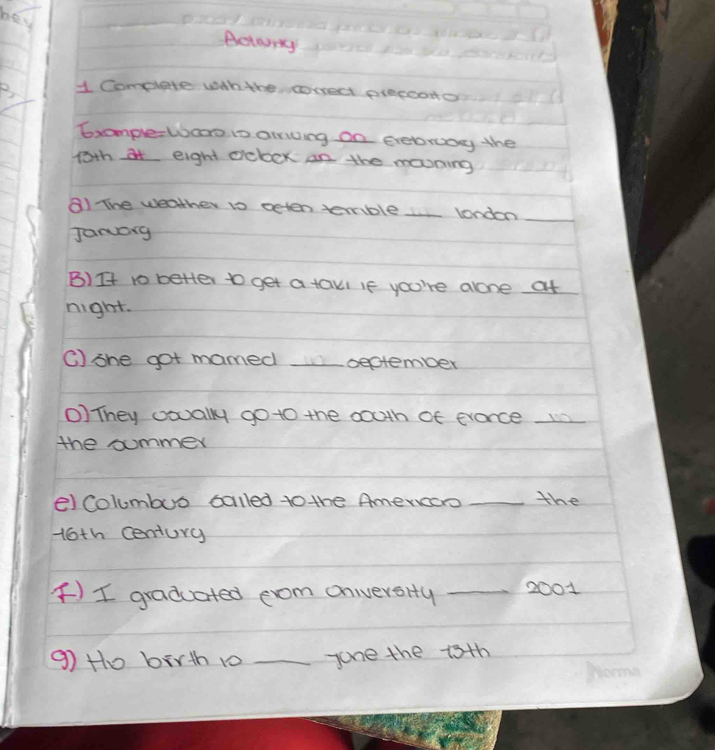 Activity
1 Complete with the correct
Example= is arriving on the
13th at eight o'clock in the mourning
a) The weather is terrible london
January
B) It is better to get a taxi if you're alone at
night.
C) she got married in september
D) They usually go to the south of france in
the summer
e) Columbus sailed to the Americas the
16th century
F) I graduated from University 2001
g) His birth is June the 13th
Norma